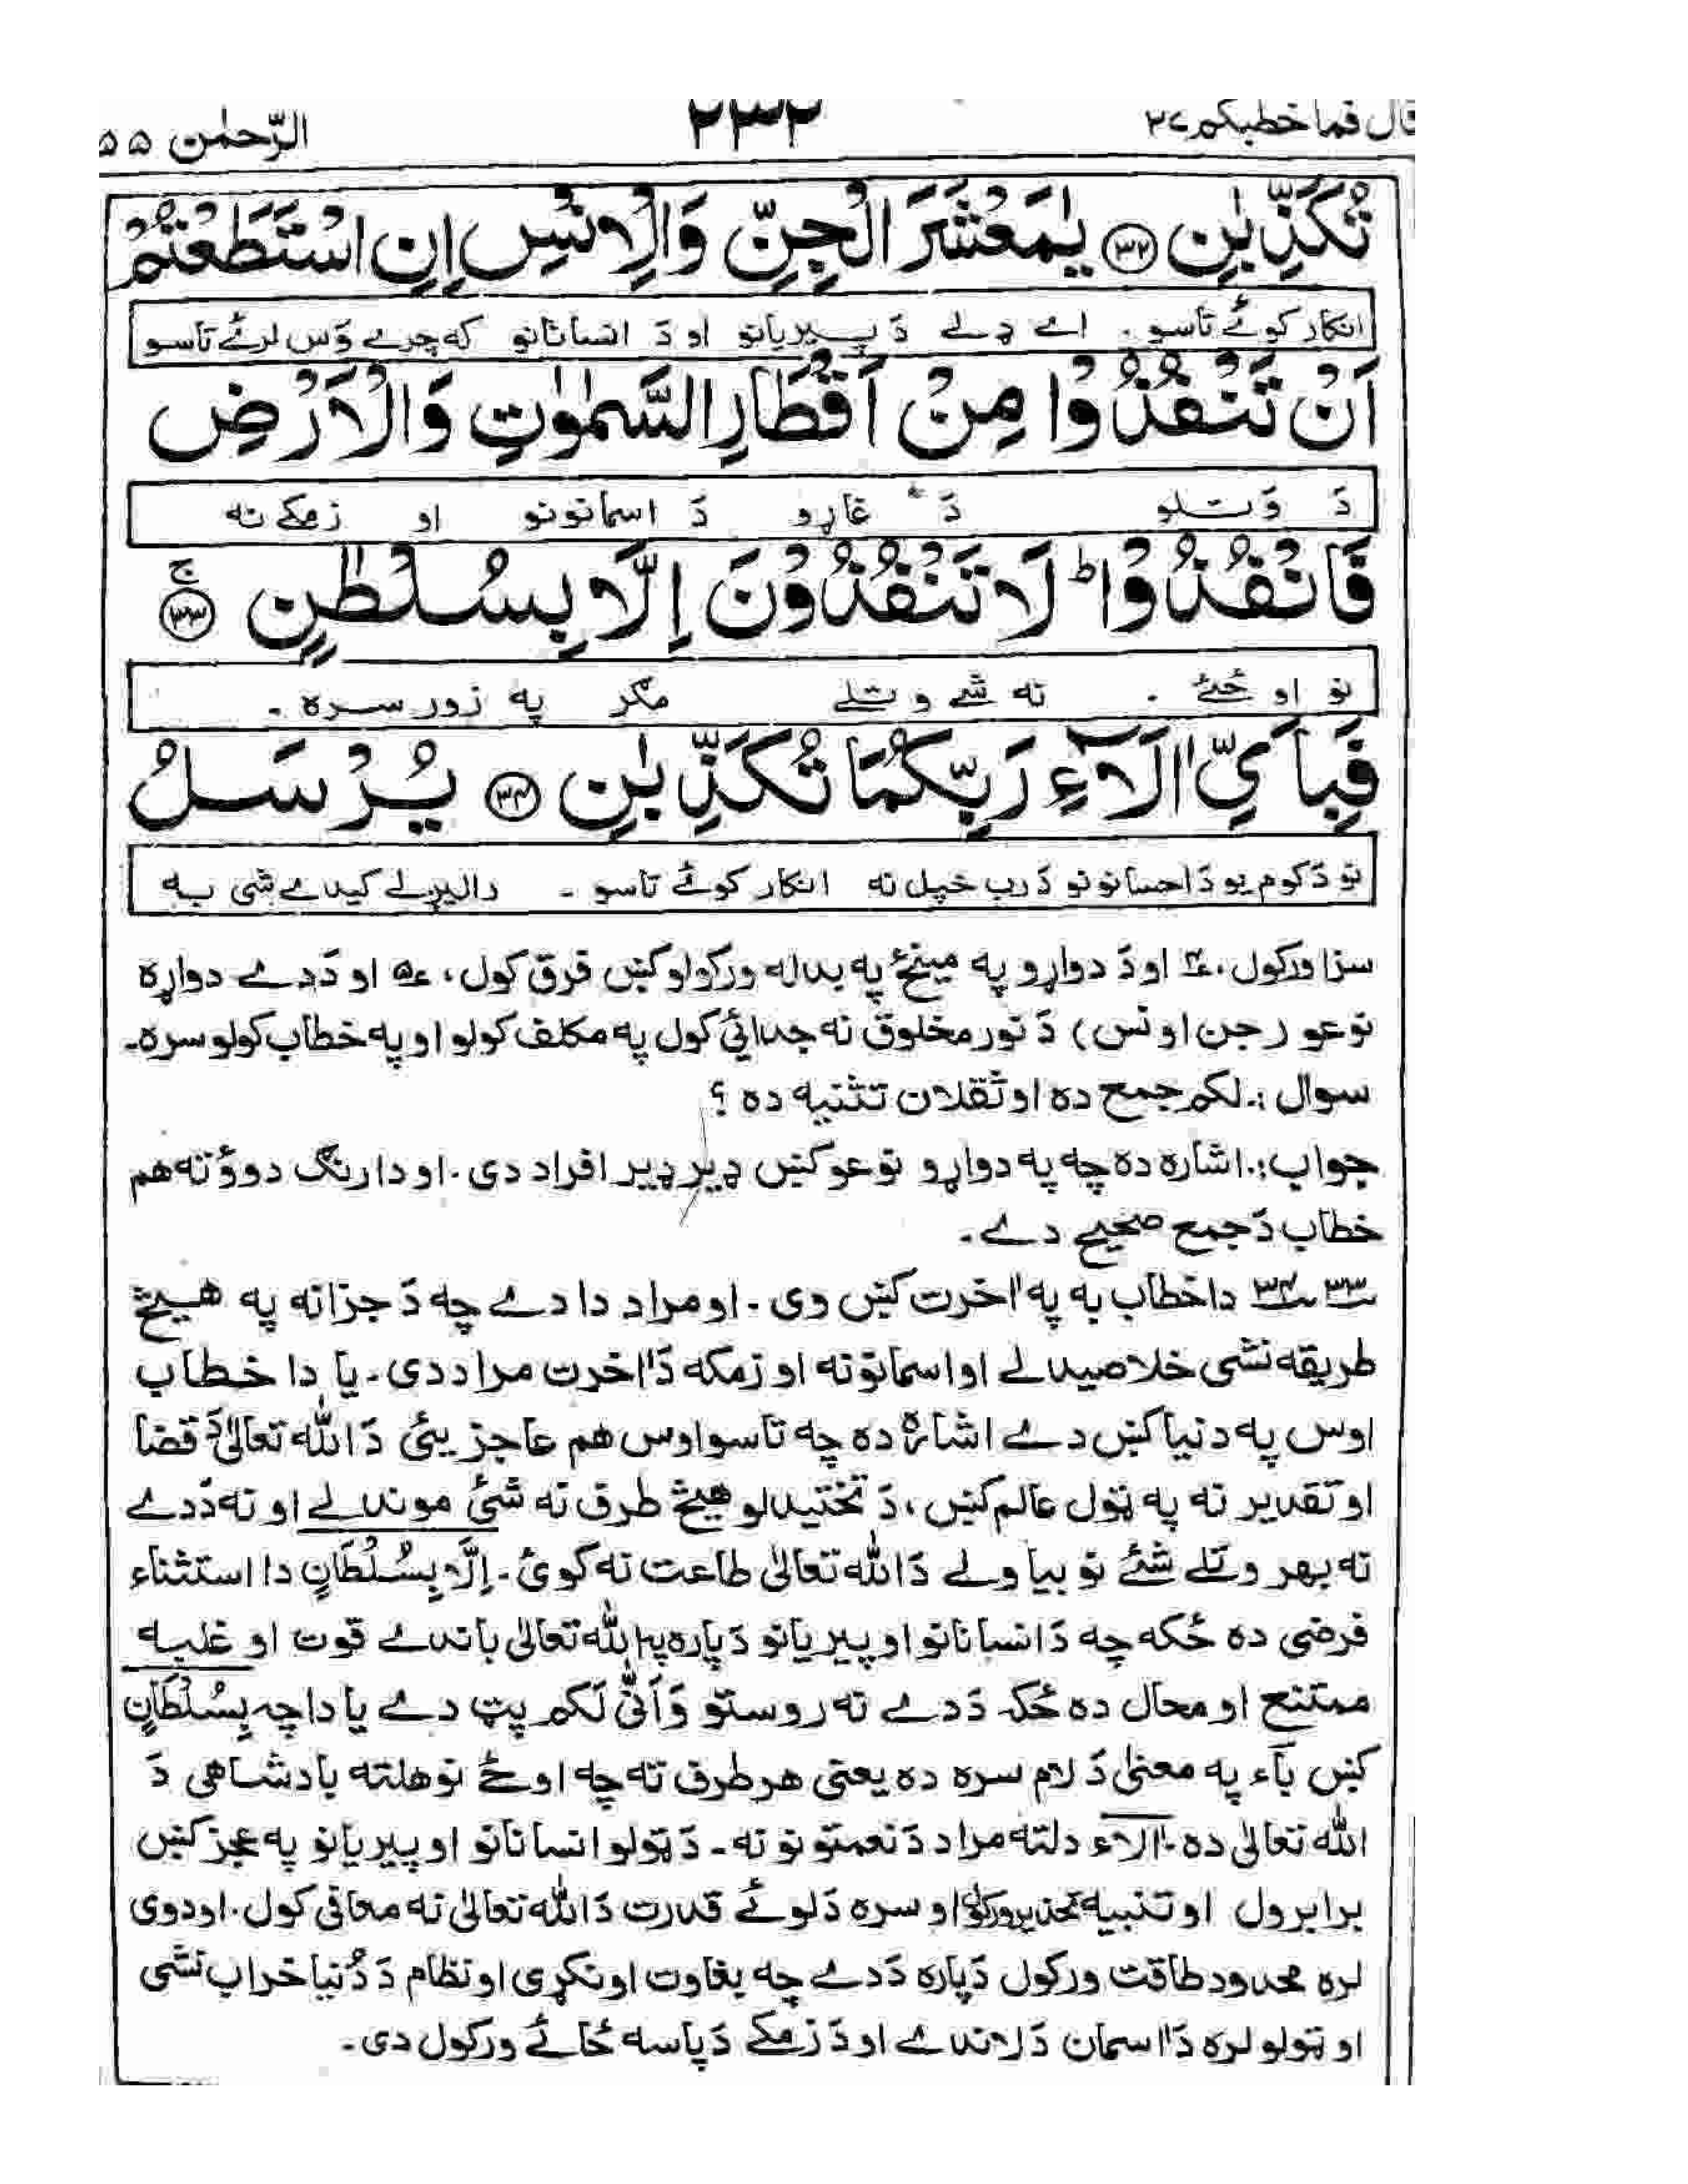 قال فما خطبكم ٢٧ ٢٣٢ الرّحمٰن ٥٥
تُكَذِّبٰنِ ﴿٣٢﴾ يٰمَعْشَرَ الْجِنِّ وَالْاِنْسِ اِنِ اسْتَطَعْتُمْ
انکار کوئے تاسو . اے ډلے دَ پیریانو او دَ انسانانو که چرے وَس لرئے تاسو
اَنْ تَنْفُذُوْا مِنْ اَقْطَارِ السَّمٰوٰتِ وَالْاَرْضِ
دَ وَتلو دَ غاړو دَ اسمانونو او زمکے نه
فَانْفُذُوْا ؕ لَا تَنْفُذُوْنَ اِلَّا بِسُلْطٰنٍ ۚ ﴿٣٣﴾
نو اوځئے . نه شے وتلے مګر په زور سره .
فَبِاَيِّ اٰلَآءِ رَبِّكُمَا تُكَذِّبٰنِ ﴿٣٤﴾ يُرْسَلُ
نو دَ کوم یو دَ احسانونو دَ رب خپل نه انکار کوئے تاسو . رالیږلے کیدے شی به
سزا ورکول، ٤؏ او دَ دواړو په مینځ په بداله ورکولو کښ فرق کول، ٥؏ او دَ دے دواړه
نوعو (جن او نس) دَ نور مخلوق نه جدائي کول په مکلف کولو او په خطاب کولو سره۔
سوال :. لکم جمع ده او ثقلان تثنیه ده ؟
جواب :. اشاره ده چه په دواړو نوعو کښ ډیر ډیر افراد دی . او دا رنګ دووؤ ته هم
خطاب دَ جمع صحیح دے .
٣٣ ٣٤ دا خطاب به په اٰخرت کښ وی . او مراد دا دے چه دَ جزا نه په هیڅ
طریقه نشی خلاصیدالے او اسمانونه او زمکه دَ اٰخرت مراد دی . یا دا خطاب
اوس په دنیا کښ دے اشاره ده چه تاسو اوس هم عاجز یئ دَ الله تعالیٰ دَ قضا
او تقدیر نه په ټول عالم کښ، دَ تختیدلو هیڅ طرف نه شئ موندلے او نه دَ دے
نه بهر وتلے شئے نو بیا ولے دَ الله تعالیٰ طاعت نه کوئ . اِلَّا بِسُلْطَانٍ دا استثناء
فرضی ده ځکه چه دَ انسانانو او پیریانو دَ پاره په الله تعالیٰ باندے قوت او غلبه
ممتنع او محال ده ځکه دَ دے نه روستو وَاَنّٰى لَكُم پټ دے یا دا چه بِسُلْطَانٍ
کښ بآء په معنیٰ دَ لام سره ده یعنی هر طرف ته چه اوځئ نو هلته بادشاهی دَ
الله تعالیٰ ده . اٰلآء دلته مراد دَ نعمتونو نه . دَ ټولو انسانانو او پیریانو په عجز کښ
برابرول او تنبیه تحذیر ورکول او سره دَ لوئے قدرت دَ الله تعالیٰ نه معافی کول . او دوی
لره محدود طاقت ورکول دَ پاره دَ دے چه بغاوت اونکړی او نظام دَ دُنیا خراب نشی
او ټولو لره دَ اٰسمان دَ لاندے او دَ زمکے دَ پاسه ځائے ورکول دی .